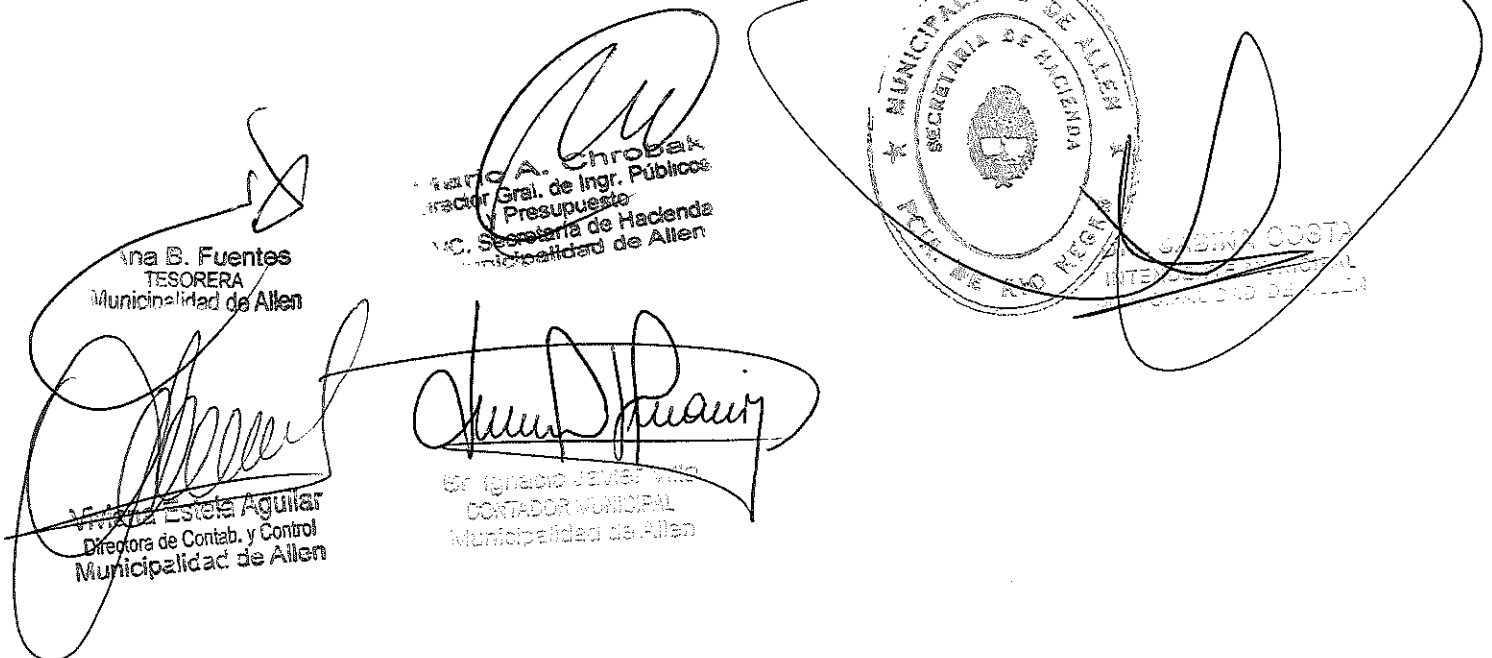 Ana B. Fuentes
TESORERA
Municipalidad de Allen
Mario A. Chrobak
Director Gral. de Ingr. Públicos
y Presupuesto
A/C. Secretaría de Hacienda
Municipalidad de Allen
★ MUNICIPALIDAD DE ALLEN ★
SECRETARIA DE HACIENDA
PCIA. DE RIO NEGRO
SABINA COSTA
INTENDENTE MUNICIPAL
MUNICIPALIDAD DE ALLEN
Viviana Estela Aguilar
Directora de Contab. y Control
Municipalidad de Allen
Cr. Ignacio Javier
CONTADOR MUNICIPAL
Municipalidad de Allen